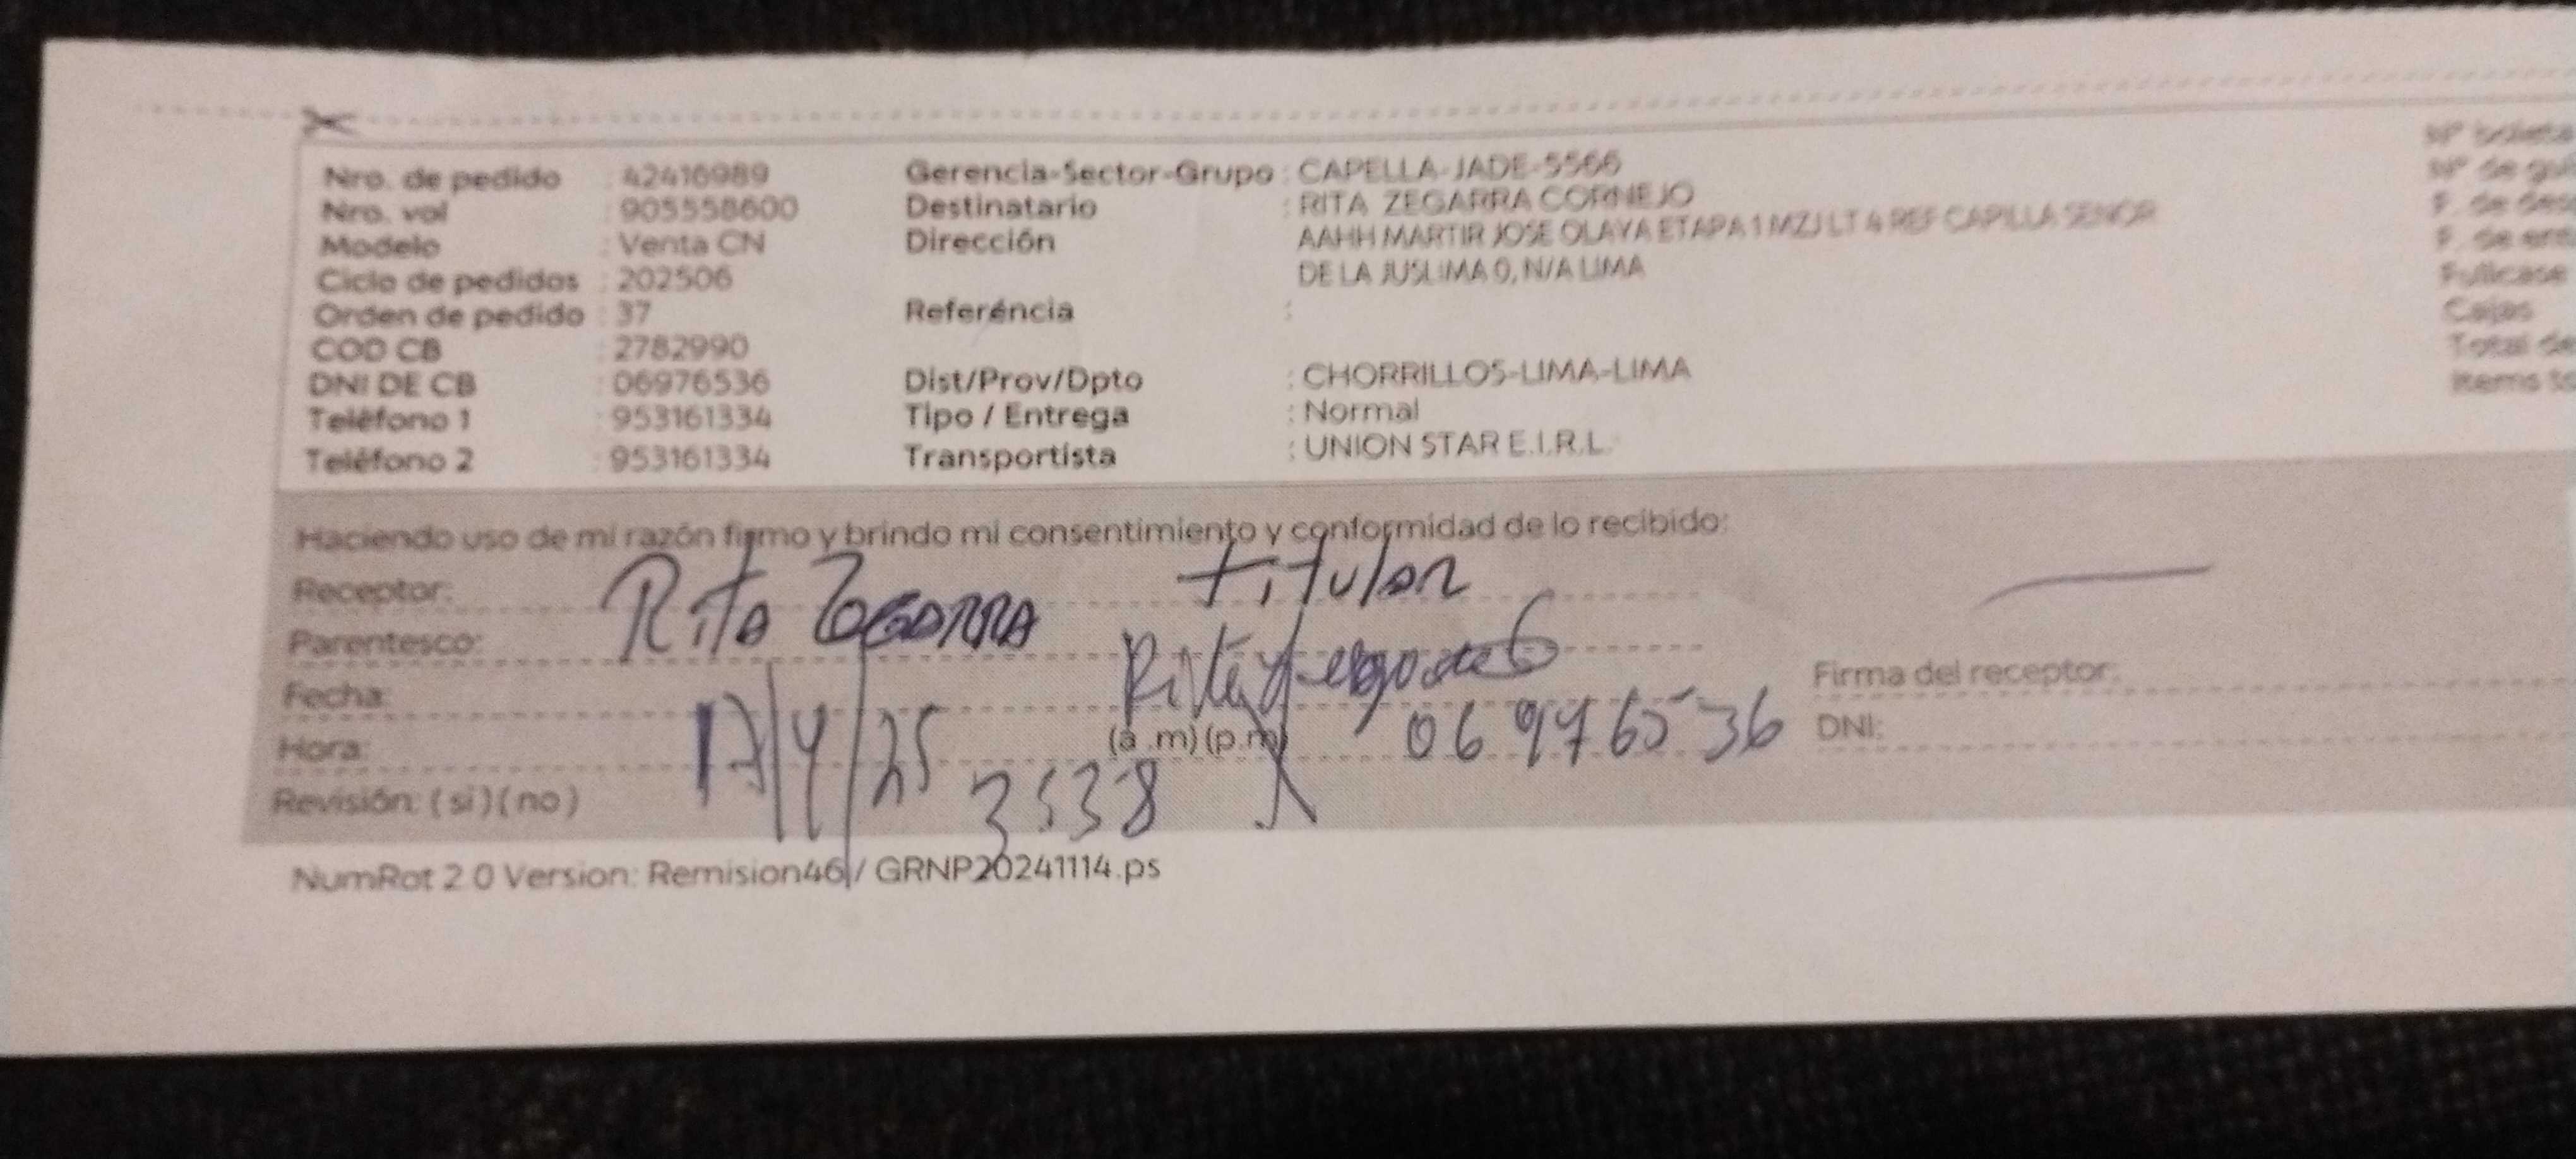 Nro. de pedido : 42416989 Gerencia-Sector-Grupo : CAPELLA-JADE-5566 Nº boleta
Nro. vol : 905558600 Destinatario : RITA ZEGARRA CORNEJO Nº de
Modelo : Venta CN Dirección AAHH MARTIR JOSE OLAYA ETAPA 1 MZJ LT 4 REF CAPILLA SENOR F. de
Ciclo de pedidos : 202506 DE LA JUSLIMA 0, N/A LIMA F. de
Orden de pedido : 37 Referéncia : Fullcase
COD CB : 2782990 Cajas
DNI DE CB : 06976536 Dist/Prov/Dpto : CHORRILLOS-LIMA-LIMA Total de
Teléfono 1 : 953161334 Tipo / Entrega : Normal Items
Teléfono 2 : 953161334 Transportista : UNION STAR E.I.R.L.
Haciendo uso de mi razón firmo y brindo mi consentimiento y conformidad de lo recibido:
Receptor: Rita Zegarra titular
Parentesco:
Firma del receptor:
Fecha: 17/4/25
Hora: (a.m) (p.m) 06976536 DNI:
Revisión: (si) (no) 3538
NumRot 2.0 Version: Remision46 / GRNP20241114.ps